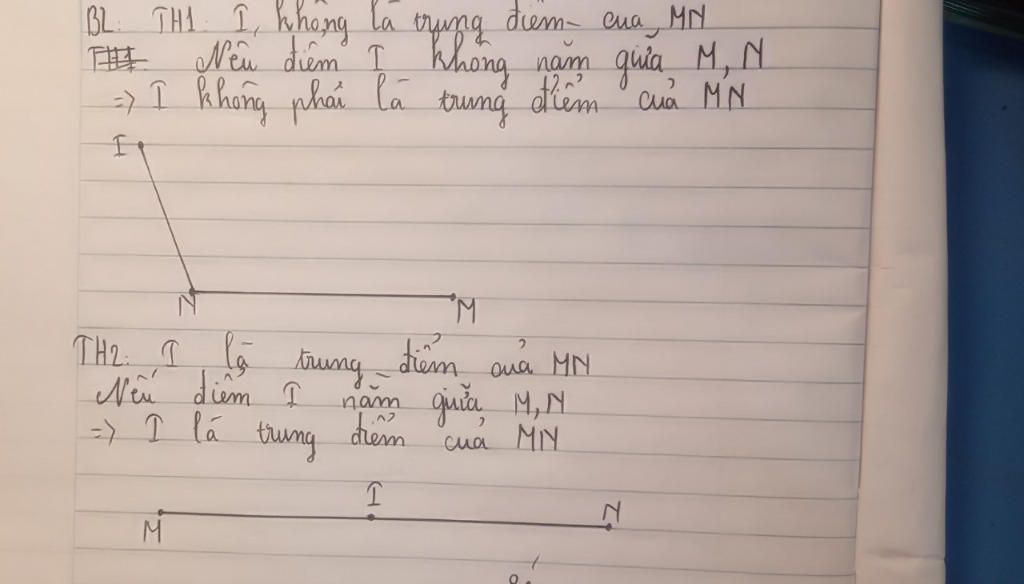 B2: TH1: I không là trung điểm của MN
Nếu điểm I không nằm giữa M, N
=> I không phải là trung điểm của MN
I
N
M
TH2: I là trung điểm của MN
Nếu điểm I nằm giữa M, N
=> I là trung điểm của MN
I
M
N